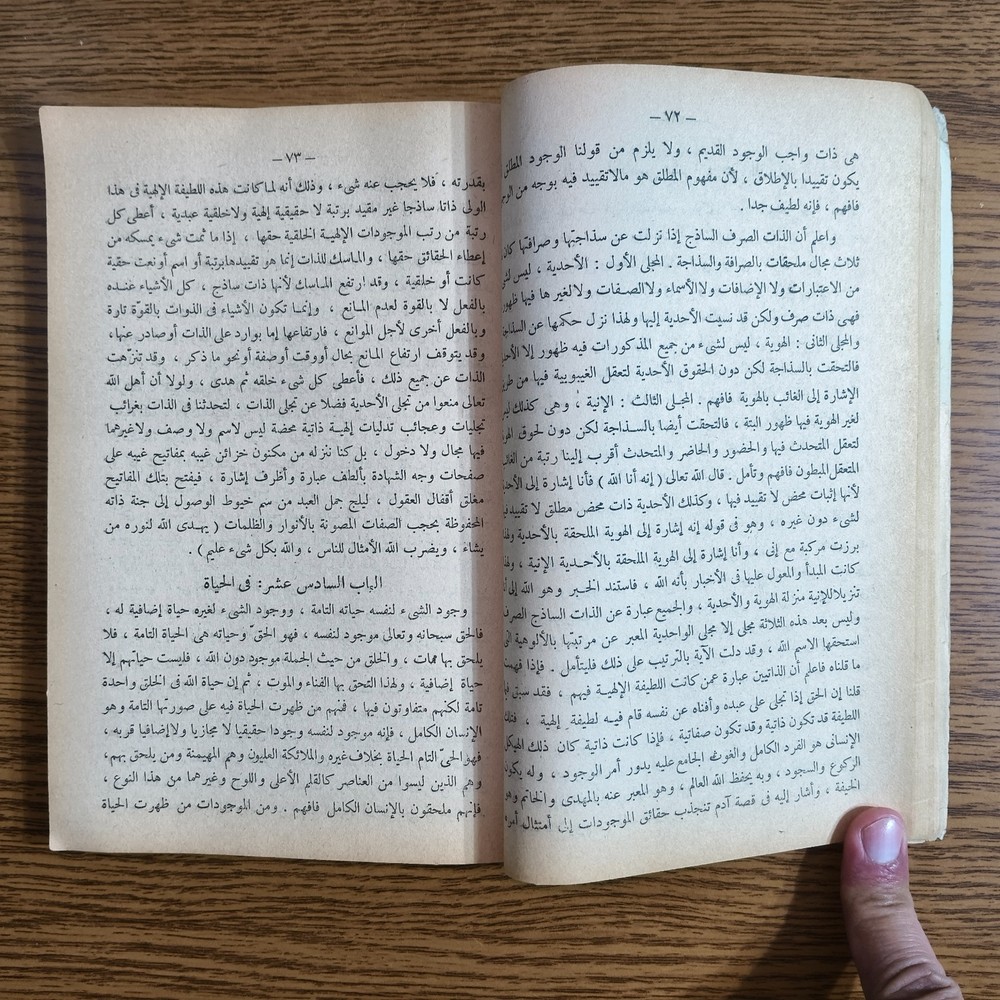 — ٧٢ —
هى ذات واجب الوجود القديم ، ولا يلزم من قولنا الوجود المطلق
يكون تقييدا بالإطلاق ، لأن مفهوم المطلق هو مالاتقييد فيه بوجه من
فافهم ، فإنه لطيف جدا .
واعلم أن الذات الصرف الساذج إذا نزلت عن سذاجتها وصرافتها كان
ثلاث مجال ملحقات بالصرافة والسذاجة . المجلى الأول : الأحدية ، ليس
من الاعتبارات ولا الإضافات ولا الأسماء ولا الصفات ولا لغيرها فيها ظهور
فهى ذات صرف ولكن قد نسبت الأحدية إليها ولهذا نزل حكمها عن السذاجة
والمجلى الثانى : الهوية ، ليس لشىء من جميع المذكورات فيه ظهور إلا
فالتحقت بالسذاجة لكن دون لحقوق الأحدية لتعقل الغيبوبية فيها من
الإشارة إلى الغائب بالهوية فافهم . المجلى الثالث : الإنية ، وهى كذلك
لغير الهوية فيها ظهور البتة ، فالتحقت أيضا بالسذاجة لكن دون لحوق
لتعقل المتحدث فيها والحضور والحاضر والمتحدث أقرب إلينا رتبة من
المتعقل المبطون فافهم وتأمل . قال الله تعالى ( إنه أنا الله ) فأنا إشارة إلى
لأنها إثبات محض لا تقييد فيها ، وكذلك الأحدية ذات محض مطلق لا تقييد
لشىء دون غيره ، وهو فى قوله إنه إشارة إلى الهوية الملحقة بالأحدية
برزت مركبة مع إنى ، وأنا إشارة إلى الهوية الملحقة بالأحدية الإنية ،
كانت المبدأ والمعول عليها فى الأخبار بأنه الله ، فاستند الخبر وهو الله
تنزيلا للإنية منزلة الهوية والأحدية ، والجميع عبارة عن الذات الساذج الصرف
وليس بعد هذه الثلاثة مجلى إلا مجلى الواحدية المعبر عن مرتبتها بالألوهية
استحقها الاسم الله ، وقد دلت الآية بالترتيب على ذلك فليتأمل . فإذا فهمت
ما قلناه فاعلم أن الذاتيين عبارة عمن كانت اللطيفة الإلهية فيهم ، فقد سبق
قلنا إن الحق إذا تجلى على عبده وأفناه عن نفسه قام فيه لطيفة إلهية ،
اللطيفة قد تكون ذاتية وقد تكون صفاتية ، فإذا كانت ذاتية كان ذلك الهيكل
الإنسانى هو الفرد الكامل والغوث الجامع عليه يدور أمر الوجود ، وله يكون
الركوع والسجود ، وبه يحفظ الله العالم ، وهو المعبر عنه بالمهدى والخاتم وهو
الخيفة ، وأشار إليه فى قصة آدم تنجذب حقائق الموجودات إلى أمتثال
— ٧٣ —
بقدرته ، فلا يحجب عنه شىء ، وذلك أنه لما كانت هذه اللطيفة الإلهية فى هذا
الولى ذاتا ساذجا غير مقيد برتبة لا حقيقية إلهية ولا خلقية عبدية ، أعطى كل
رتبة من رتب الموجودات الإلهية الخلقية حقها ، إذا ما ثمت شىء يمسكه من
إعطاء الحقائق حقها ، والماسك للذات إنما هو تقييدها برتبة أو اسم أو نعت حقية
كانت أو خلقية ، وقد ارتفع الماسك لأنها ذات ساذج ، كل الأشياء عنده
بالفعل لا بالقوة لعدم المانع ، وإنما تكون الأشياء فى الذوات بالقوّة تارة
وبالفعل أخرى لأجل الموانع ، فارتفاعها إما بوارد على الذات أو صادر عنها ،
وقد يتوقف ارتفاع المانع بحال أو وقت أو صفة أو نحو ما ذكر ، وقد تنزهت
الذات عن جميع ذلك ، فأعطى كل شىء خلقه ثم هدى ، ولولا أن أهل الله
تعالى منعوا من تجلى الأحدية فضلا عن تجلى الذات ، لتحدثنا فى الذات بغرائب
تجليات وعجائب تدليات إلهية ذاتية محضة ليس لاسم ولا وصف ولا غيرهما
فيها مجال ولا دخول ، بل كنا ننزله من مكنون خزائن غيبه بمفاتيح غيبه على
صفحات وجه الشهادة بألطف عبارة وأظرف إشارة ، فيفتح بتلك المفاتيح
مغلق أقفال العقول ، ليلج جمل العبد من سم خيوط الوصول إلى جنة ذاته
المحفوظة بحجب الصفات المصونة بالأنوار والظلمات ( يهدى الله لنوره من
يشاء ، ويضرب الله الأمثال للناس ، والله بكل شىء عليم ) .
الباب السادس عشر : فى الحياة
وجود الشىء لنفسه حياته التامة ، ووجود الشىء لغيره حياة إضافية له ،
فالحق سبحانه وتعالى موجود لنفسه ، فهو الحق وحياته هى الحياة التامة ، فلا
يلحق بها ممات ، والخلق من حيث الجملة موجود دون الله ، فليست حياتهم إلا
حياة إضافية ، ولهذا التحق بها الفناء والموت ، ثم إن حياة الله فى الخلق واحدة
تامة لكنهم متفاوتون فيها ، فمنهم من ظهرت الحياة فيه على صورتها التامة وهو
الإنسان الكامل ، فإنه موجود لنفسه وجودا حقيقيا لا مجازيا ولا إضافيا قربه ،
فهو الحىّ التام الحياة بخلاف غيره والملائكة العليون وهم المهيمنة ومن يلحق بهم ،
وهم الذين ليسوا من العناصر كالقلم الأعلى واللوح وغيرهما من هذا النوع ،
فإنهم ملحقون بالإنسان الكامل فافهم . ومن الموجودات من ظهرت الحياة